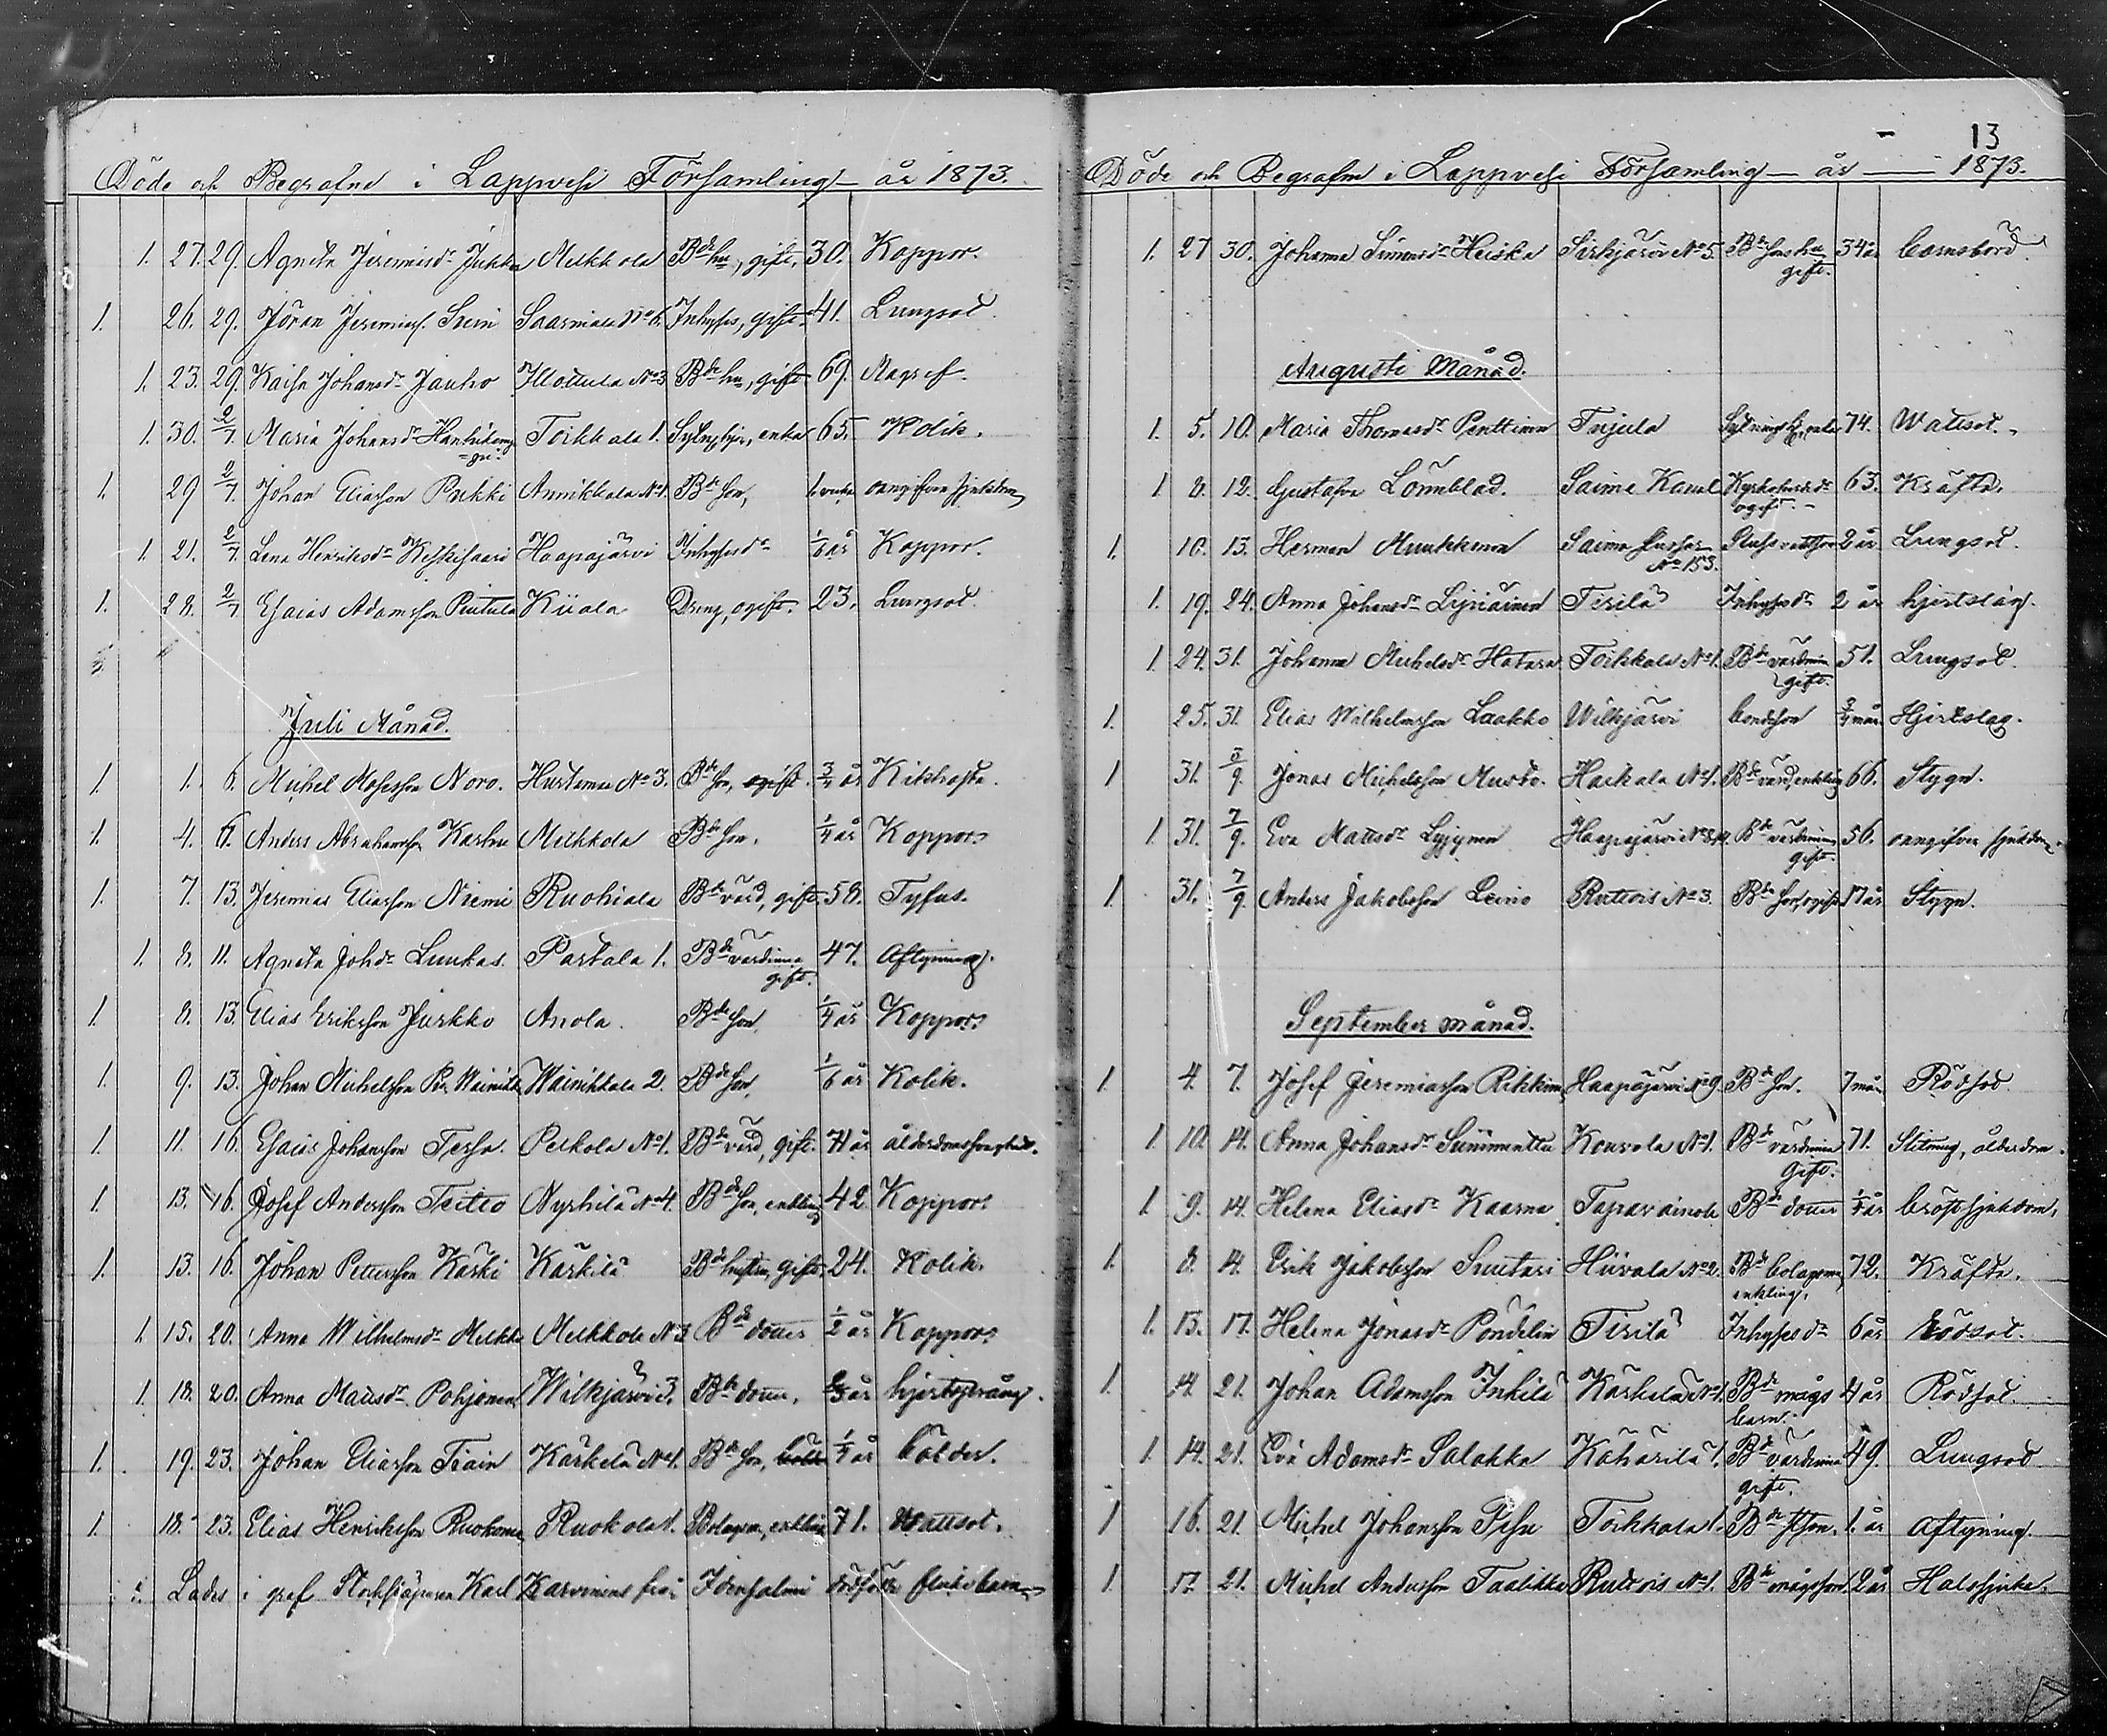 Döde och Begrafne i Lappvesi Församling år 1873.
1. 27. 29. Agneta Jeremiasdr Jukka Melkkola Bde hu, gift. 30. Koppor.
1. 26. 29. Jöran Jeremiass. Suni Saarniala No 6. Inhyses, gift. 41. Lungsot.
1. 23. 29. Kaisa Johansdr Jauho Illottula No 3 Bde hu, gift 69. Magref.
1. 30. 2/7. Maria Johansdr Toikkala 1. enka 65. Kolik.
1. 29 2/7. Johan Eliasson Pukki Armikkala No 1. Bde son, 1 vecka oangifven sjukdom
1. 21. 2/7. Lena Henriksdr Keskisaari Haapajärvi Inhysesdr 1/6 år Koppor.
1. 28. 2/7 Esaias Adamsson Pentula Kiiala Dreng, ogift. 23. Lungsot.
Juli Månad.
1. 1. 6. Michel Mosesson Noro. Hurtanmaa No 3. Bde son, ogift. 3/4 år Kikhosta.
1. 4. 6. Anders Abrahamss. Karhu Melkkola Bde son. 1/4 år Koppor.
1. 7. 13. Jeremias Eliasson Niemi Ruohiala Bde värd, gift. 58. Tyfus.
1. 8. 11. Agneta Johdr Luukas. Partala 1. Bde värdinna 47. Aftyning.
gift.
1. 8. 13. Elias Eriksson Jurkko Anola. Bde son 1/4 år Koppor.
1. 9. 13. Johan Michelsson Wainikkala 2. Bde son, 1/6 år Kolik.
1. 11. 16. Esaias Johansson Terho. Peltola No 1. Bde värd, gift. 71 år ålderdomssvaghet.
1. 13. 16. Josef Andersson Teitto Nyrhilä No 4. Bde son, enkling 42 Koppor.
1. 13. 16. Johan Pettersson Kärki Kärkilä Bde gift. 24. Kolik.
1. 15. 20. Anna Wilhelmsdr Melkko Melkkola No 3 Bde dotter 1/2 år Koppor.
1. 18. 20. Anna Mattsdr Pohjonen Wilkjärvi 3. Bde dotter, år hjertsprång.
1. 19. 23. Johan Eliasson Tiain Kärkelä No 1. Bde son, 1/4 år bölder.
1. 18. 23. Elias Henriksson Ruokonen Ruokola 1. Bolagsm, enkling 71. Wattsot.
Lades i graf Karl Karvinens från Idensalmi dödfödde flickebarn
13
Döde och Begrafne i Lappvesi Församling år 1873.
1. 27 30. Johanna Simonsdr Heiska Sirkjärvi No 5. Bde sons hu 34 år barnsbörd.
gift.
Augusti Månad.
1. 5. 10. Maria Thomasdr Penttinen Tujula enka 74. Wattsot.
1 8. 12. Gustafva Lönnblad. Saima Kanal 63. Kräfta.
ogift.
1. 10. 13. Herman Muukkonen Saima 2 år Lungsot.
No 153.
1. 19. 24. Anna Johansdr Lyijäinen Tirilä Inhysesdr 2 år hjertslag.
1. 24. 31. Johanna Michelsdr Hatara Toikkala No 1. Bde värdinna 51. Lungsot.
gift.
1. 25. 31. Elias Wilhelmsson Laakko Wilkjärvi bondson 3/4 mån. Hjertslag.
1 31. 5/9. Jonas Michelsson Musto. Haikala No 1. Bde värd, enkling 66. Stygn.
1. 31. 7/9. Eva Mattsdr Lyjynen Haapajärvi Bde värdinna 56. oangifven sjukdom.
gift
1. 31. 7/9. Anders Jakobsson Leino Ruttois No 3. Bde son, ogift 17 år Stygn.
September månad.
1. 4. 7. Josef Jeremiasson Rikkinen Haapajärvi No 9. Bde son. 7 mån. Rödsot.
1. 10. 14. Anna Johansdr Summenttu Kouvola No 1. Bde värdinna 71. Slitning, ålderdom.
Gift.
1. 9. 14. Helena Eliasdr Kaarna Tapavainola Bde dotter år bröstsjukdom.
1. 8. 14. Erik Jakobsson Suutari Hiivala No 2. Bde bolagsman, 72. Kräfta.
enkling.
1. 15. 17. Helena Jonasdr Pöndelin Tirilä Inhysesdr 6 år Rödsot.
1. 14. 21. Johan Adamsson Inkilä Kärkelä No 1. Bde mågs 4 år Rödsot.
barn.
1. 14. 21. Eva Adamsdr Salakka Kaharila 1. Bde värdinna 49. Lungsot
gift.
1 16. 21. Michel Johansson Pesu Toikkala 1. Bde son. 1. år Aftyning.
1. 17. 21. Michel Andersson Taalikka Ruttois No 1. Bde mågs son. 2 år Halssjuka.